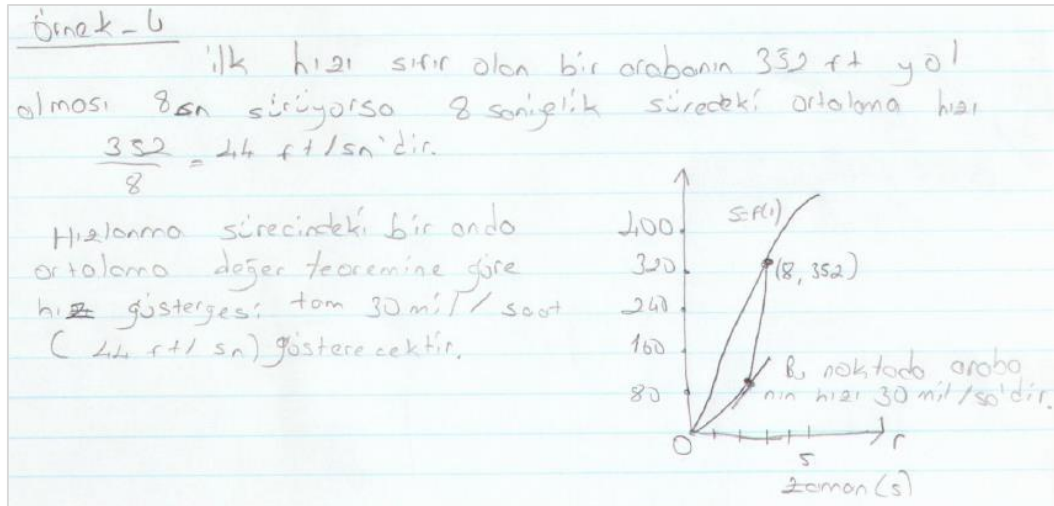 örnek-4
ilk hızı sıfır olan bir arabanın 352 ft yol
alması 8sn sürüyorsa 8 saniyelik süredeki ortalama hızı
352
8
= 44 ft/sn'dir.
Hızlanma sürecindeki bir anda
ortalama değer teoremine göre
hız göstergesi tam 30 mil/saat
(44 ft/sn) gösterecektir.
400
320
240
160
80
0
s=f(t)
(8, 352)
Bu noktada araba
nın hızı 30 mil/sa'dir.
5
t
zaman (s)